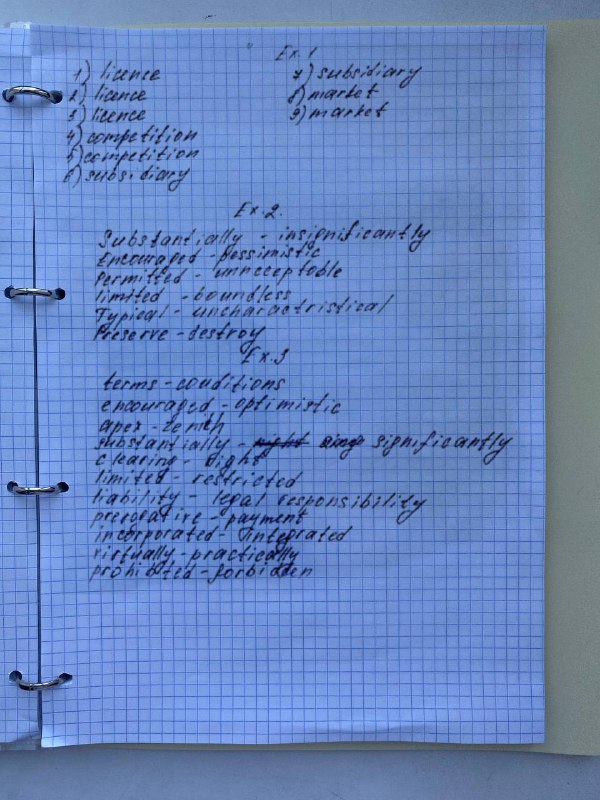 Ex. 1
1) licence
2) licence
3) licence
4) competition
5) competition
6) subsidiary
7) subsidiary
8) market
9) market
Ex. 2.
Substantially - insignificantly
Encouraged - pessimistic
Permitted - unncceptoble
limited - boundless
Typical - uncharactristical
Preserve - destroy
Ex. 3
terms - conditions
encouraged - optimistic
apex - zenith
substantially - significantly
clearing - right
limited - restricted
liability - legal responsibility
prerogative - payment
incorporated - integrated
virtually - practically
prohibited - forbidden